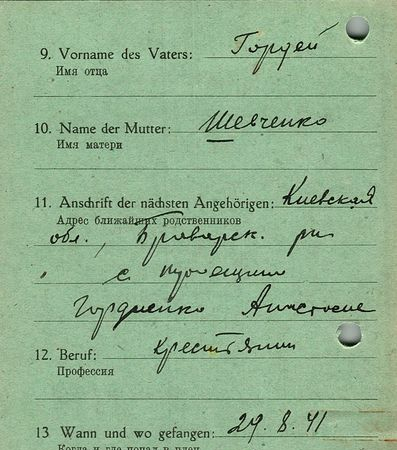 9. Vorname des Vaters: Гордей
Имя отца
10. Name der Mutter: Шевченко
Имя матери
11. Anschrift der nächsten Angehörigen: Киевская
Адрес ближайших родственников
обл., Броварск. рн
с
Гордиенко Анастасие
12. Beruf: крестьянин
Профессия
13 Wann und wo gefangen: 29. 8. 41
Когда и где попал в плен